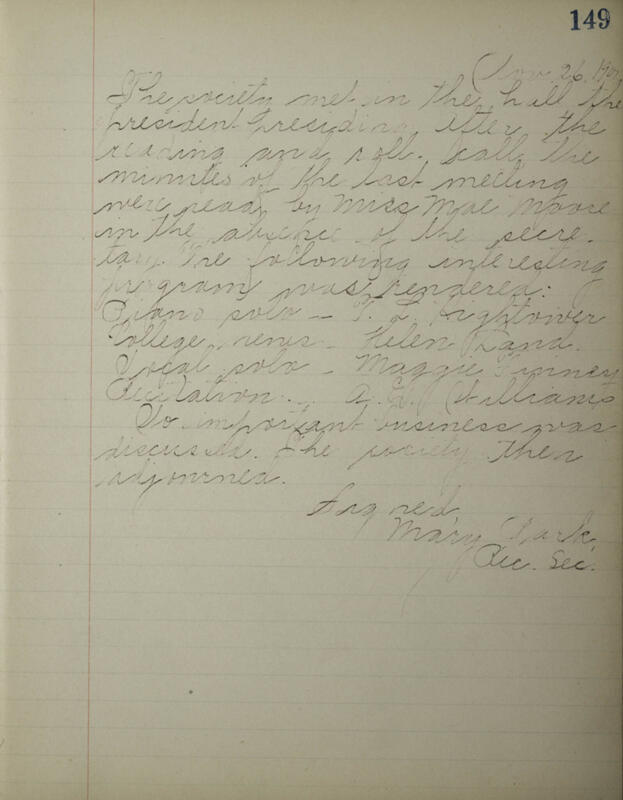 149
Nov. 26, 190
The society met in the hall the
president presiding. After the
reading and roll-call, the
minutes of the last meeting
were read by Miss Mae Moore
in the absence of the secre-
tary. The following interesting
program was rendered:
Piano solo — Hightower
College news - Helen Rand.
Vocal solo - Maggie Finney
Recitation - Williams
No important business was
discussed. The society then
adjourned.
Signed,
Mary Clark
Rec. Sec.